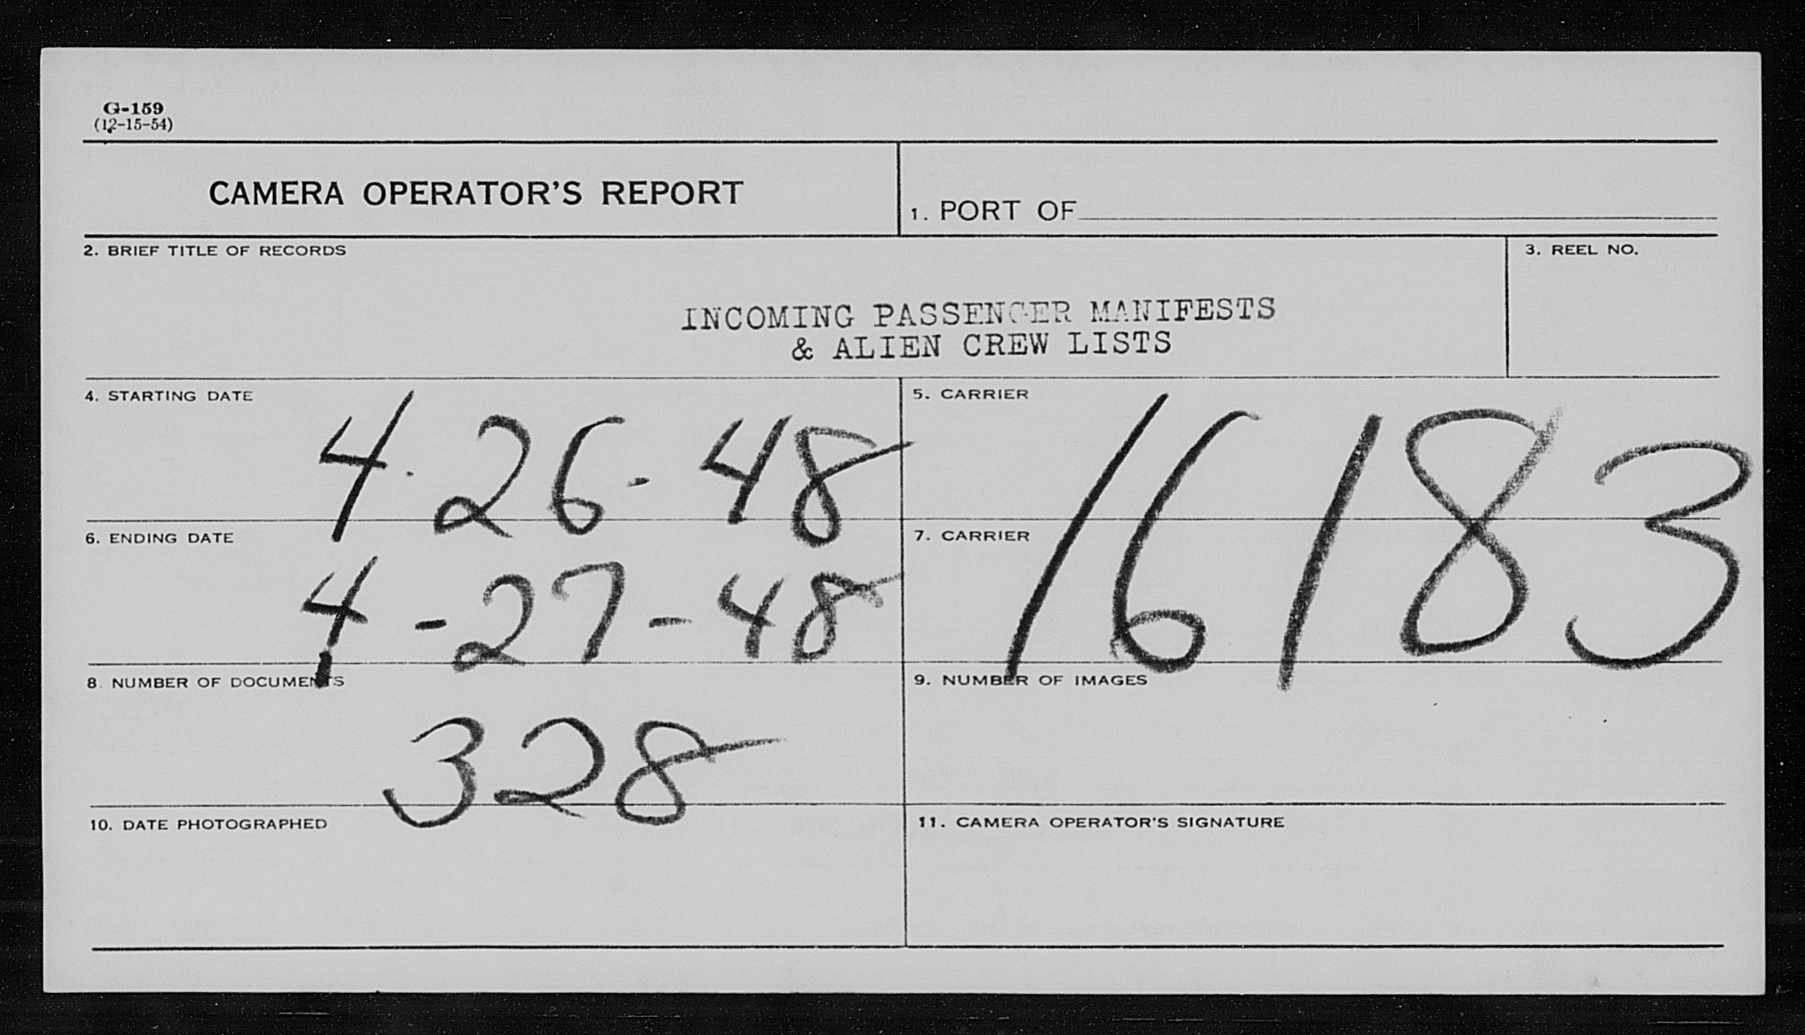 G-159
(12-15-54)
CAMERA OPERATOR'S REPORT
1. PORT OF
2. BRIEF TITLE OF RECORDS
3. REEL NO.
INCOMING PASSENGER MANIFESTS
& ALIEN CREW LISTS
4. STARTING DATE
4-26-48
5. CARRIER
16183
6. ENDING DATE
4-27-48
7. CARRIER
8. NUMBER OF DOCUMENTS
328
9. NUMBER OF IMAGES
10. DATE PHOTOGRAPHED
11. CAMERA OPERATOR'S SIGNATURE